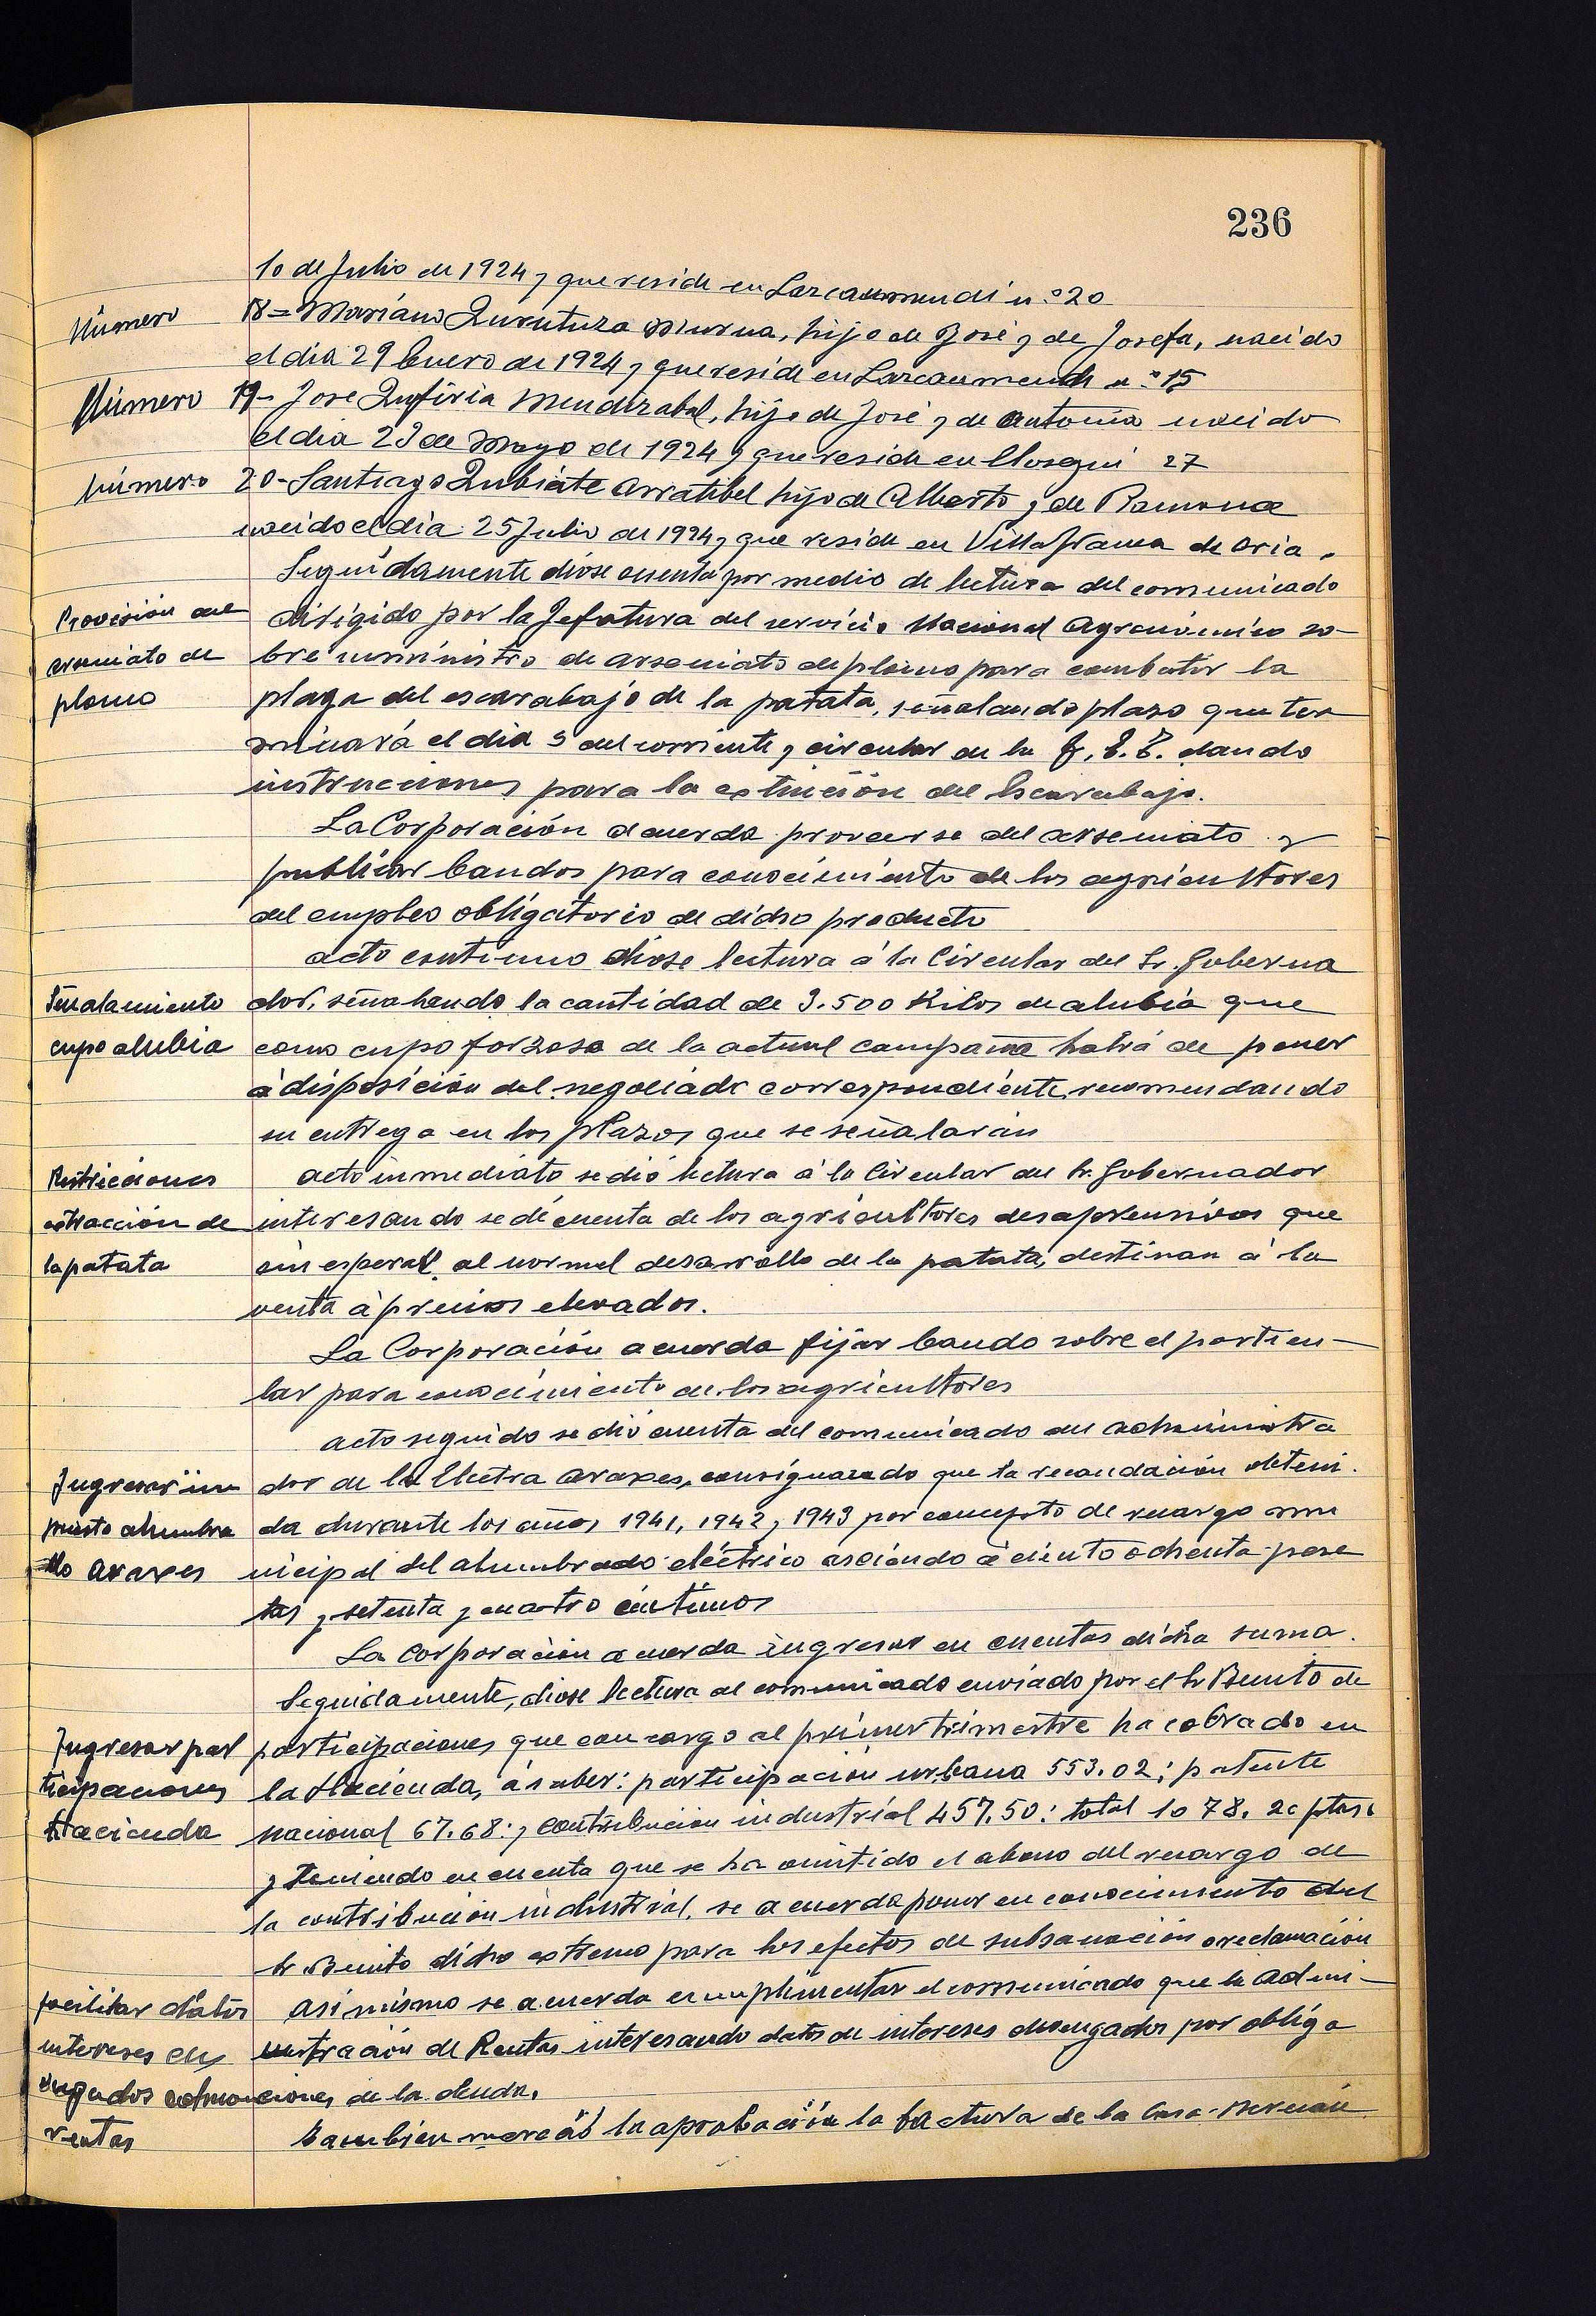 236
10 de Julio de 1924 y que reside en Lazcaumendi nº 20
Número 18= Mariáno Murua, hijo de José y de Josefa, nacido
el dia 29 Enero de 1924 y que reside en Lazcaumendi nº 15
Número 19- Jose Mendizabal, hijo de José y de Antonia nacido
el dia 23 de Mayo de 1924 y que reside en 27
Número 20- Santiago Zubiate Arratibel hijo de Alberto y de Ramona
nacido el dia 25 Julio de 1924 y que reside en Villafranca de Oria.
Seguidamente diose cuenta por medio de lectura del comunicado
Provisión del
dirigido por la Jefatura del servicio Nacional Agronómico so-
arseniato de
bre suministro de arseniato de plomo para combatir la
plomo
plaga del escarabajo de la patata, señalando plazo que ter
minará el dia 5 del corriente y circular de la dando
instrucciones para la extinción del Escarabajo.
La Corporación acuerda proveerse del arseniato y
publicar bandos para conocimiento de los agricultores
del empleo obligatorio de dicho producto
acto continuo diose lectura á la Circular del Sr. Goberna
Señalamiento
dor, señalando la cantidad de 3.500 Kilos de alubia que
cupo alubia
como cupo forzoso de la actual campaña habrá de poner
á disposición del negociado correspondiente recomendando
su entrega en los plazos que se señalarán
Restricciones
acto inmediato se dió lectura á la Circular del Sr. Gobernador
extracción de
interesando se dé cuenta de los agricultores desaprensivos que
la patata
sin esperar al normal desarrollo de la patata, destinan á la
venta á precios elevados.
La Corporación acuerda fijar bando sobre el particu-
lar para conocimiento de los agricultores
acto seguido se dió cuenta del comunicado del administra
Ingresar im
dor de la Electra Araxes, consignando que la recaudación obteni.
puesto alumbra
da durante los años 1941, 1942 y 1943 por concepto de recargo mu
do Araxes
nicipal del alumbrado eléctrico asciende á ciento ochenta pese
tas y setenta y cuatro céntimos
La Corporación acuerda ingresar en cuentas dicha suma.
Seguidamente, diose lectura al comunicado enviado por el Sr Benito de
Ingresar par
participaciones que con cargo al primer trimestre ha cobrado en
ticipaciones
la Hacienda, á saber: participación urbana 553.02; patente
Hacienda
nacional 67.68: y Contribución industrial 457.50: total 1078.20 ptas.
y Teniendo en cuenta que se ha omitido el abono del recargo de
la contribución industrial, se acuerda poner en conocimiento del
Sr Benito dicho extremo para los efectos de subsanación o reclamación
facilitar datos
Asimismo se acuerda cumplimentar el comunicado que la Admi-
intereses de
nistración de Rentas interesando datos de intereses devengados por obliga
vengados admon
ciones de la deuda.
rentas
Tambien mereció la aprobación la factura de la Casa